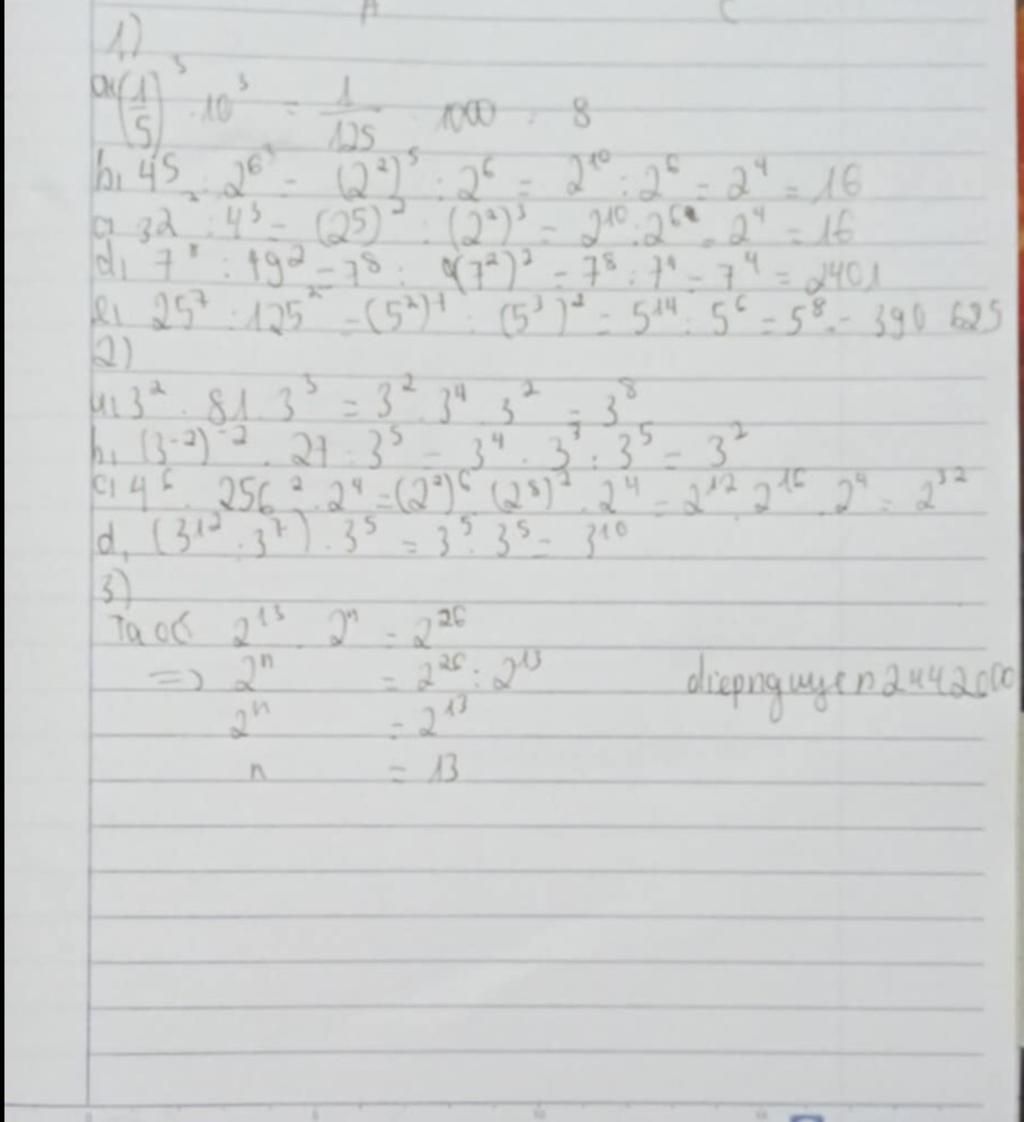 A C
1)
a, (1/5)³ . 10³ = 1/125 . 1000 = 8
b, 4⁵ : 2⁶ = (2²)⁵ : 2⁶ = 2¹⁰ : 2⁶ = 2⁴ = 16
c, 32² : 4³ = (25)² : (2²)³ = 2¹⁰ : 2⁶ = 2⁴ = 16
d, 7⁸ : 49² = 7⁸ : (7²)² = 7⁸ : 7⁴ = 7⁴ = 2401
e, 25⁷ : 125² = (5²)⁷ : (5³)² = 5¹⁴ : 5⁶ = 5⁸ = 390 625
2)
a, 3² . 81 . 3³ = 3² . 3⁴ . 3² = 3⁸
b, (3⁻²)⁻² . 27 : 3⁵ = 3⁴ . 3³ : 3⁵ = 3²
c, 4⁶ . 256² . 2⁴ = (2²)⁶ . (2⁸)² . 2⁴ = 2¹² . 2¹⁶ . 2⁴ = 2³²
d, (3¹² : 3⁷) . 3⁵ = 3⁵ . 3⁵ = 3¹⁰
3)
Ta có 2¹³ . 2ⁿ = 2²⁶
=> 2ⁿ = 2²⁶ : 2¹³
2ⁿ = 2¹³
n = 13